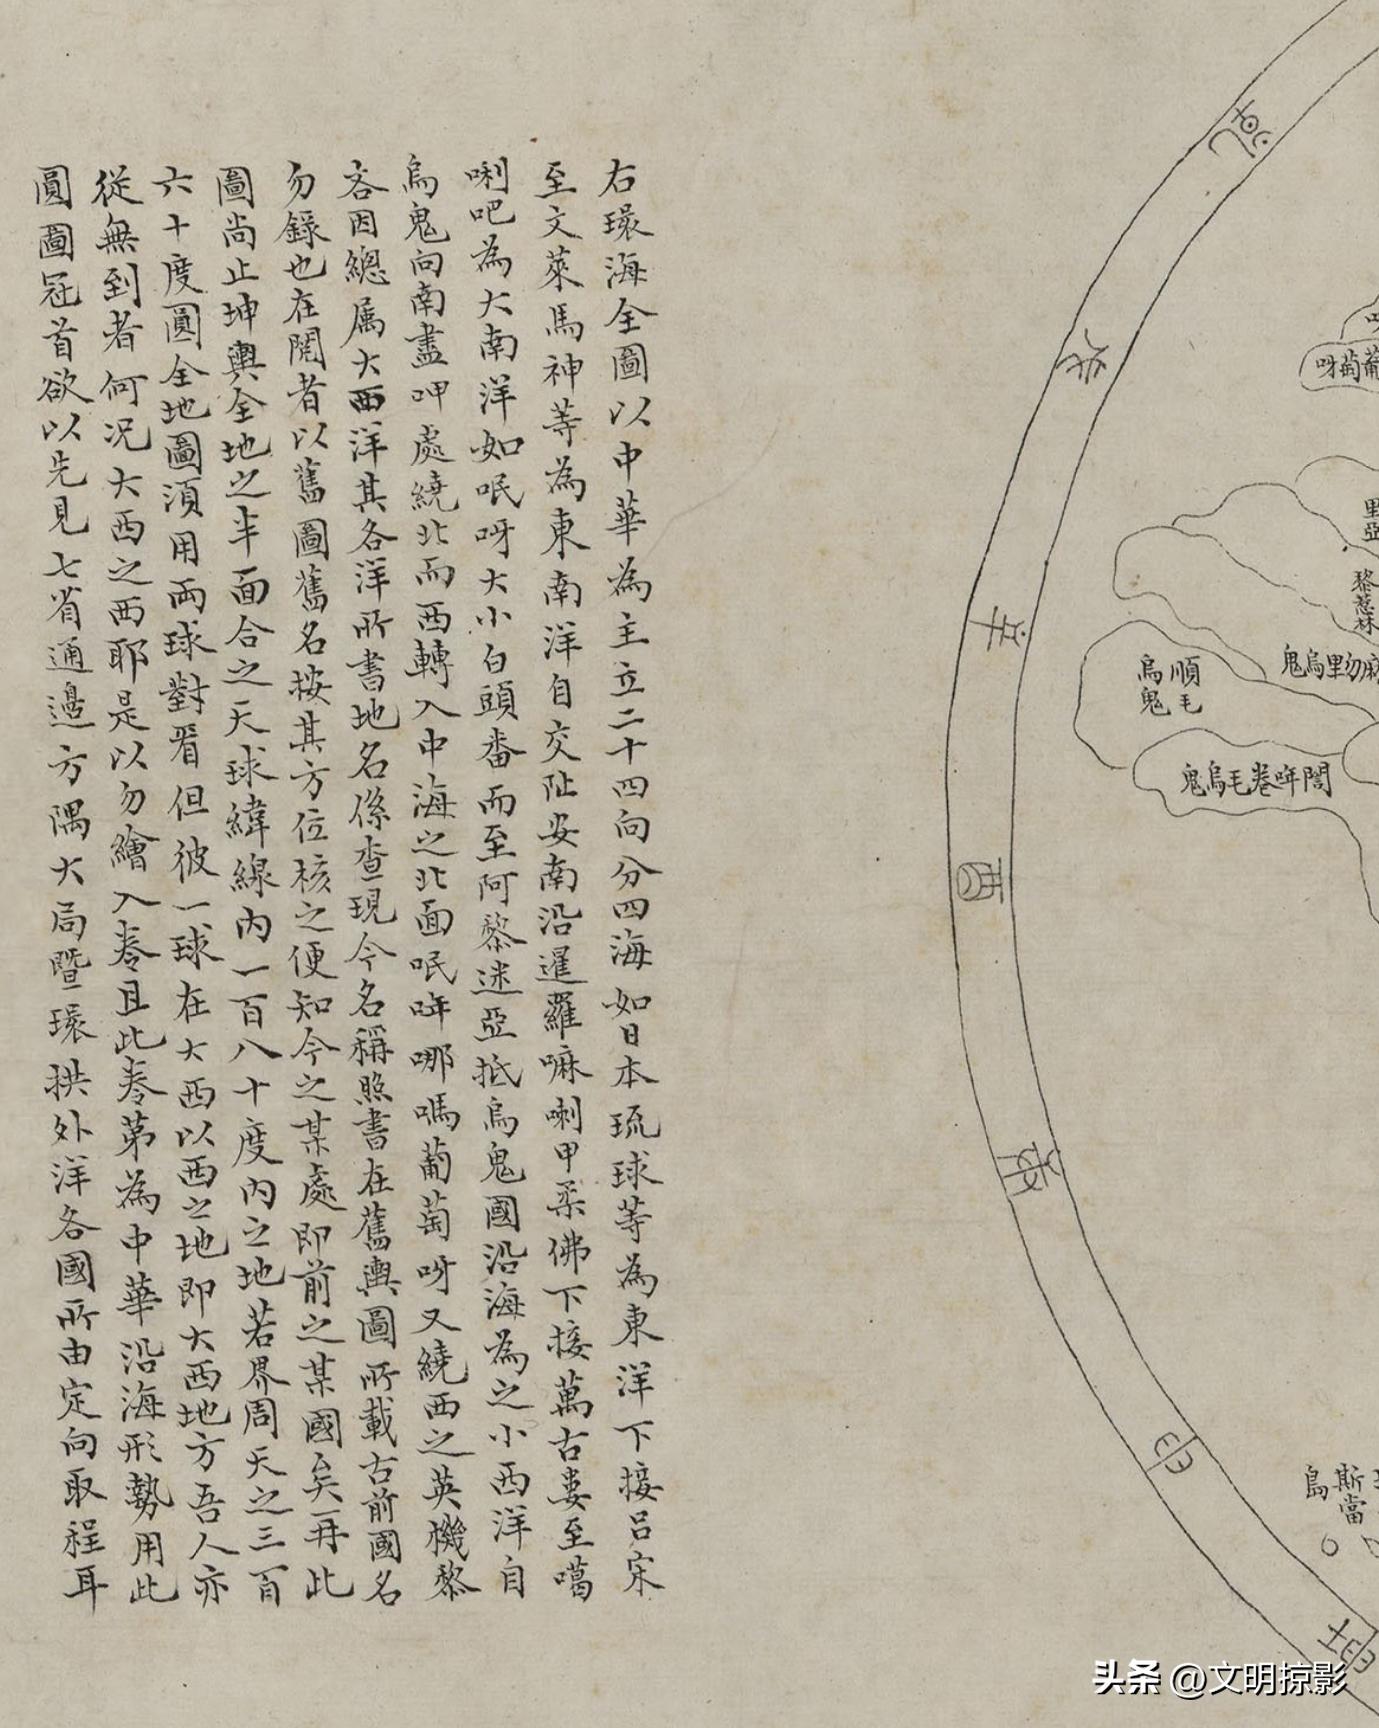 右環海全圖以中華為主立二十四向分四海如日本琉球等為東洋下接呂宋
至文萊馬神等為東南洋自交阯安南沿暹羅嘛喇甲柔佛下接萬古婁至噶
喇吧為大南洋如呡呀大小白頭番而至阿黎迷亞抵烏鬼國沿海為之小西洋自
烏鬼向南盡呷處繞北而西轉入中海之北面呡哖哪嗎葡萄呀又繞西之英機黎
吝因總属大西洋其各洋所書地名係查現今名稱照書在舊輿圖所載古前國名
勿錄也在閱者以舊圖舊名按其方位核之便知今之某處即前之某國矣再此
圖尚止坤輿全地之半面合之天球緯線內一百八十度內之地若界周天之三百
六十度圓全地圖須用兩球對看但彼一球在大西以西之地即大西地方吾人亦
從無到者何况大西之西耶是以勿繪入卷且此卷第為中華沿海形勢用此
圓圖冠首欲以先見七省通邊方隅大局暨環拱外洋各國所由定向取程耳
乾
戌
辛
酉
庚
申
坤
呀萄葡
里亞
黎惹林
鬼烏里勿麻
順毛
烏鬼
鬼烏毛卷哖誾
斯當
烏
头条 @文明掠影